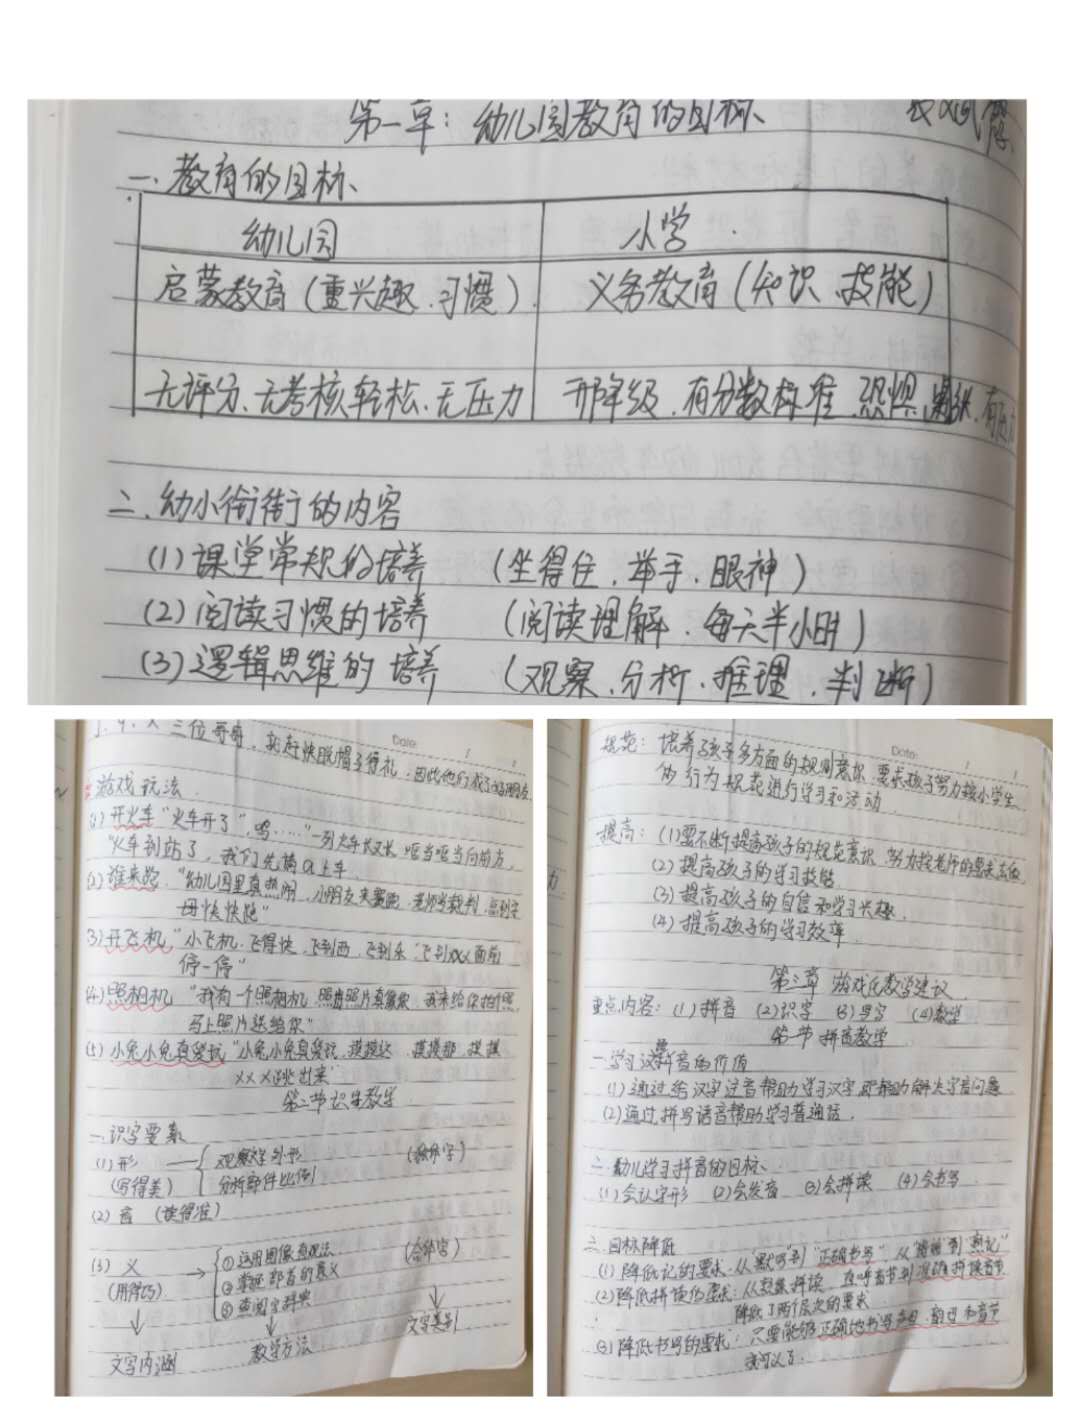 第一章：幼儿园教育的目标
一.教育的目标
幼儿园 小学
启蒙教育（重兴趣.习惯） 义务教育（知识.技能）
无评分.无考核.轻松.无压力 年级.有分数标准.恐惧.有压力
二.幼小衔接的内容
(1)课堂常规的培养 （坐得住.举手.眼神）
(2)阅读习惯的培养 （阅读理解.每天半小时）
(3)逻辑思维的培养 （观察.分析.推理.判断）
三位哥哥，就赶快脱帽子行礼.因此他们成了好朋友
游戏玩法
(1)开火车"火车开了"，呜……"一列火车长又长.哐当哐当向前方.
"火车到站了，我们先请a上车.
(2)谁来跑."幼儿园里真热闹.小朋友来赛跑.老师当裁判.
母快快跑"
3)开飞机"小飞机.飞得快.飞到西.飞到东.飞到xxx面前
停一停"
(4)照相机 "我有一个照相机.照出照片真像你.我来给你拍张照
马上照片送给你"
(5)小兔小兔真贪玩"小兔小兔真贪玩.摸摸这.摸摸那.摸摸
xxx跳出来"
第二节识字教学
一.识字要素
(1)形 观察字外形 （独体字）
(写得美) 分析部件比例
(2)音 （读得准）
(3)义 ①运用图像直观法 （合体字）
(用得巧) ②掌握部首的意义
③查阅字辞典
文字内涵 教学方法 文字类别
规范：培养孩子多方面的规则意识.要求孩子努力按小学生
的行为规范进行学习和活动
提高：(1)要不断提高孩子的规范意识.努力按老师的要求去做
(2)提高孩子的学习技能
(3)提高孩子的自信和学习兴趣.
(4)提高孩子的学习效率
第三章 游戏化教学建议
重点内容：(1)拼音 (2)识字 (3)写字 (4)数学
第一节 拼音教学
一.学习汉语拼音的价值
(1)通过给汉字注音帮助学习汉字.即帮助解决字音问题
(2)通过拼写语音帮助学习普通话.
二.幼儿学习拼音的目标
(1)会认字形 (2)会发音 (3)会拼读 (4)会书写
三.目标降低
(1)降低记的要求：从"默写"到"正确书写".从"背诵"到"熟记"
(2)降低拼读的要求：从熟练拼读.直呼音节到准确拼读音节
降低了两个层次的要求
(3)降低书写的要求：只要能够正确地书写声母.韵母和音节
就可以了.